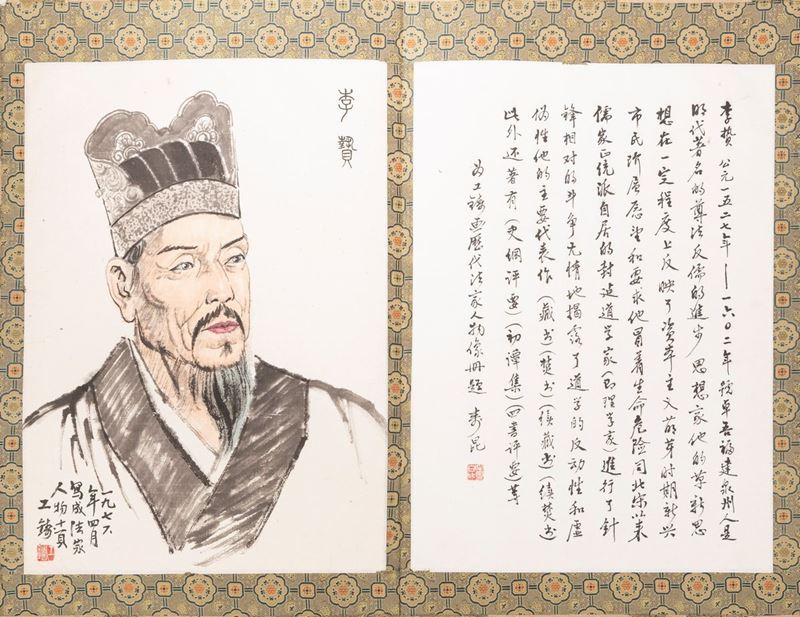 李贄 公元一五二七年——一六〇二年 號卓吾福建泉州人是
明代著名的尊法反儒的進步思想家他的革新思
想在一定程度上反映了資本主义萌芽时期新兴
市民阶层愿望和要求他冒着生命危险同北宋以来
儒家正统派自居的封建道学家(即理学家)進行了針
锋相对的斗争无情地揭露了道学的反动性和虚
伪性他的主要代表作(藏书)(焚书)(续藏书)(续焚书
此外还著有(史纲评要)(初谭集)(四書评要)等
为工鑄画歷代法家人物像冊題 寿昆
李贄
一九七六
年四月
寫成法家
人物
工鑄